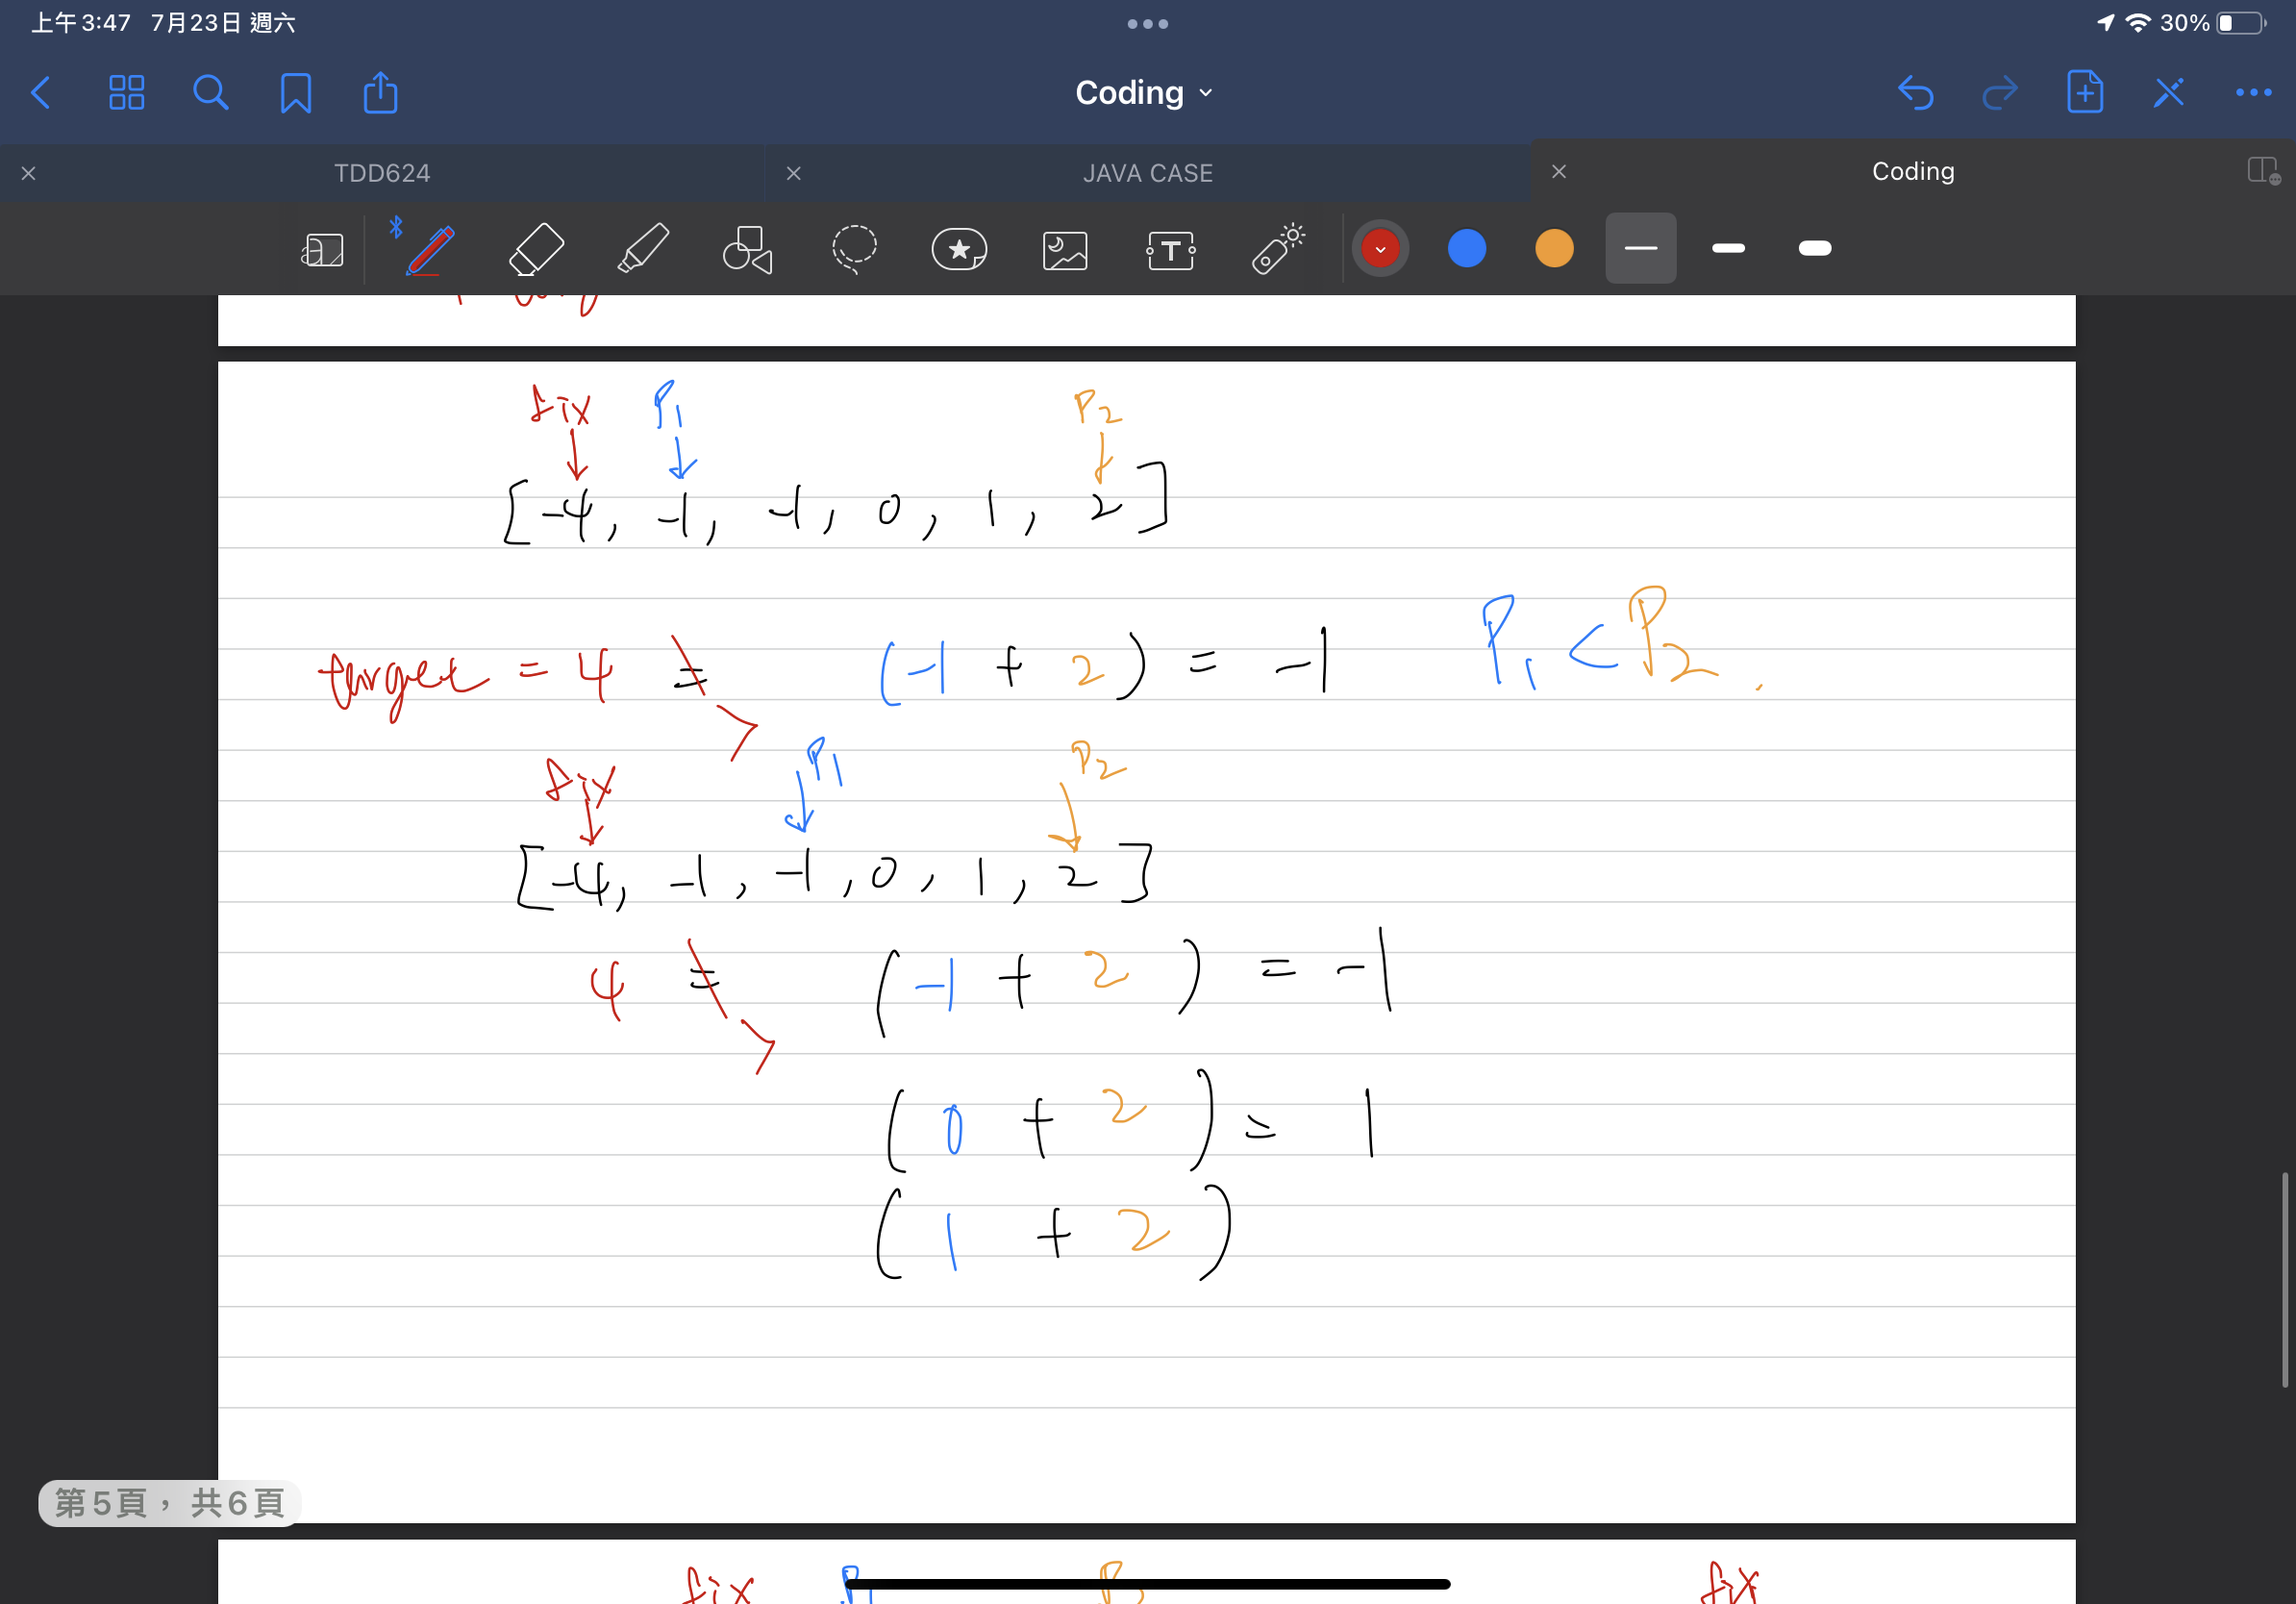 上午3:47 7月23日 週六 30%
Coding
TDD624 JAVA CASE Coding
fix P1 P2
[-4, -1, -1, 0, 1, 2]
target = 4 = > (-1 + 2) = -1 P1 < P2.
fix P1 P2
[-4, -1, -1, 0, 1, 2]
4 = > (-1 + 2) = -1
(0 + 2) = 1
(1 + 2)
第5頁，共6頁
fix P fix